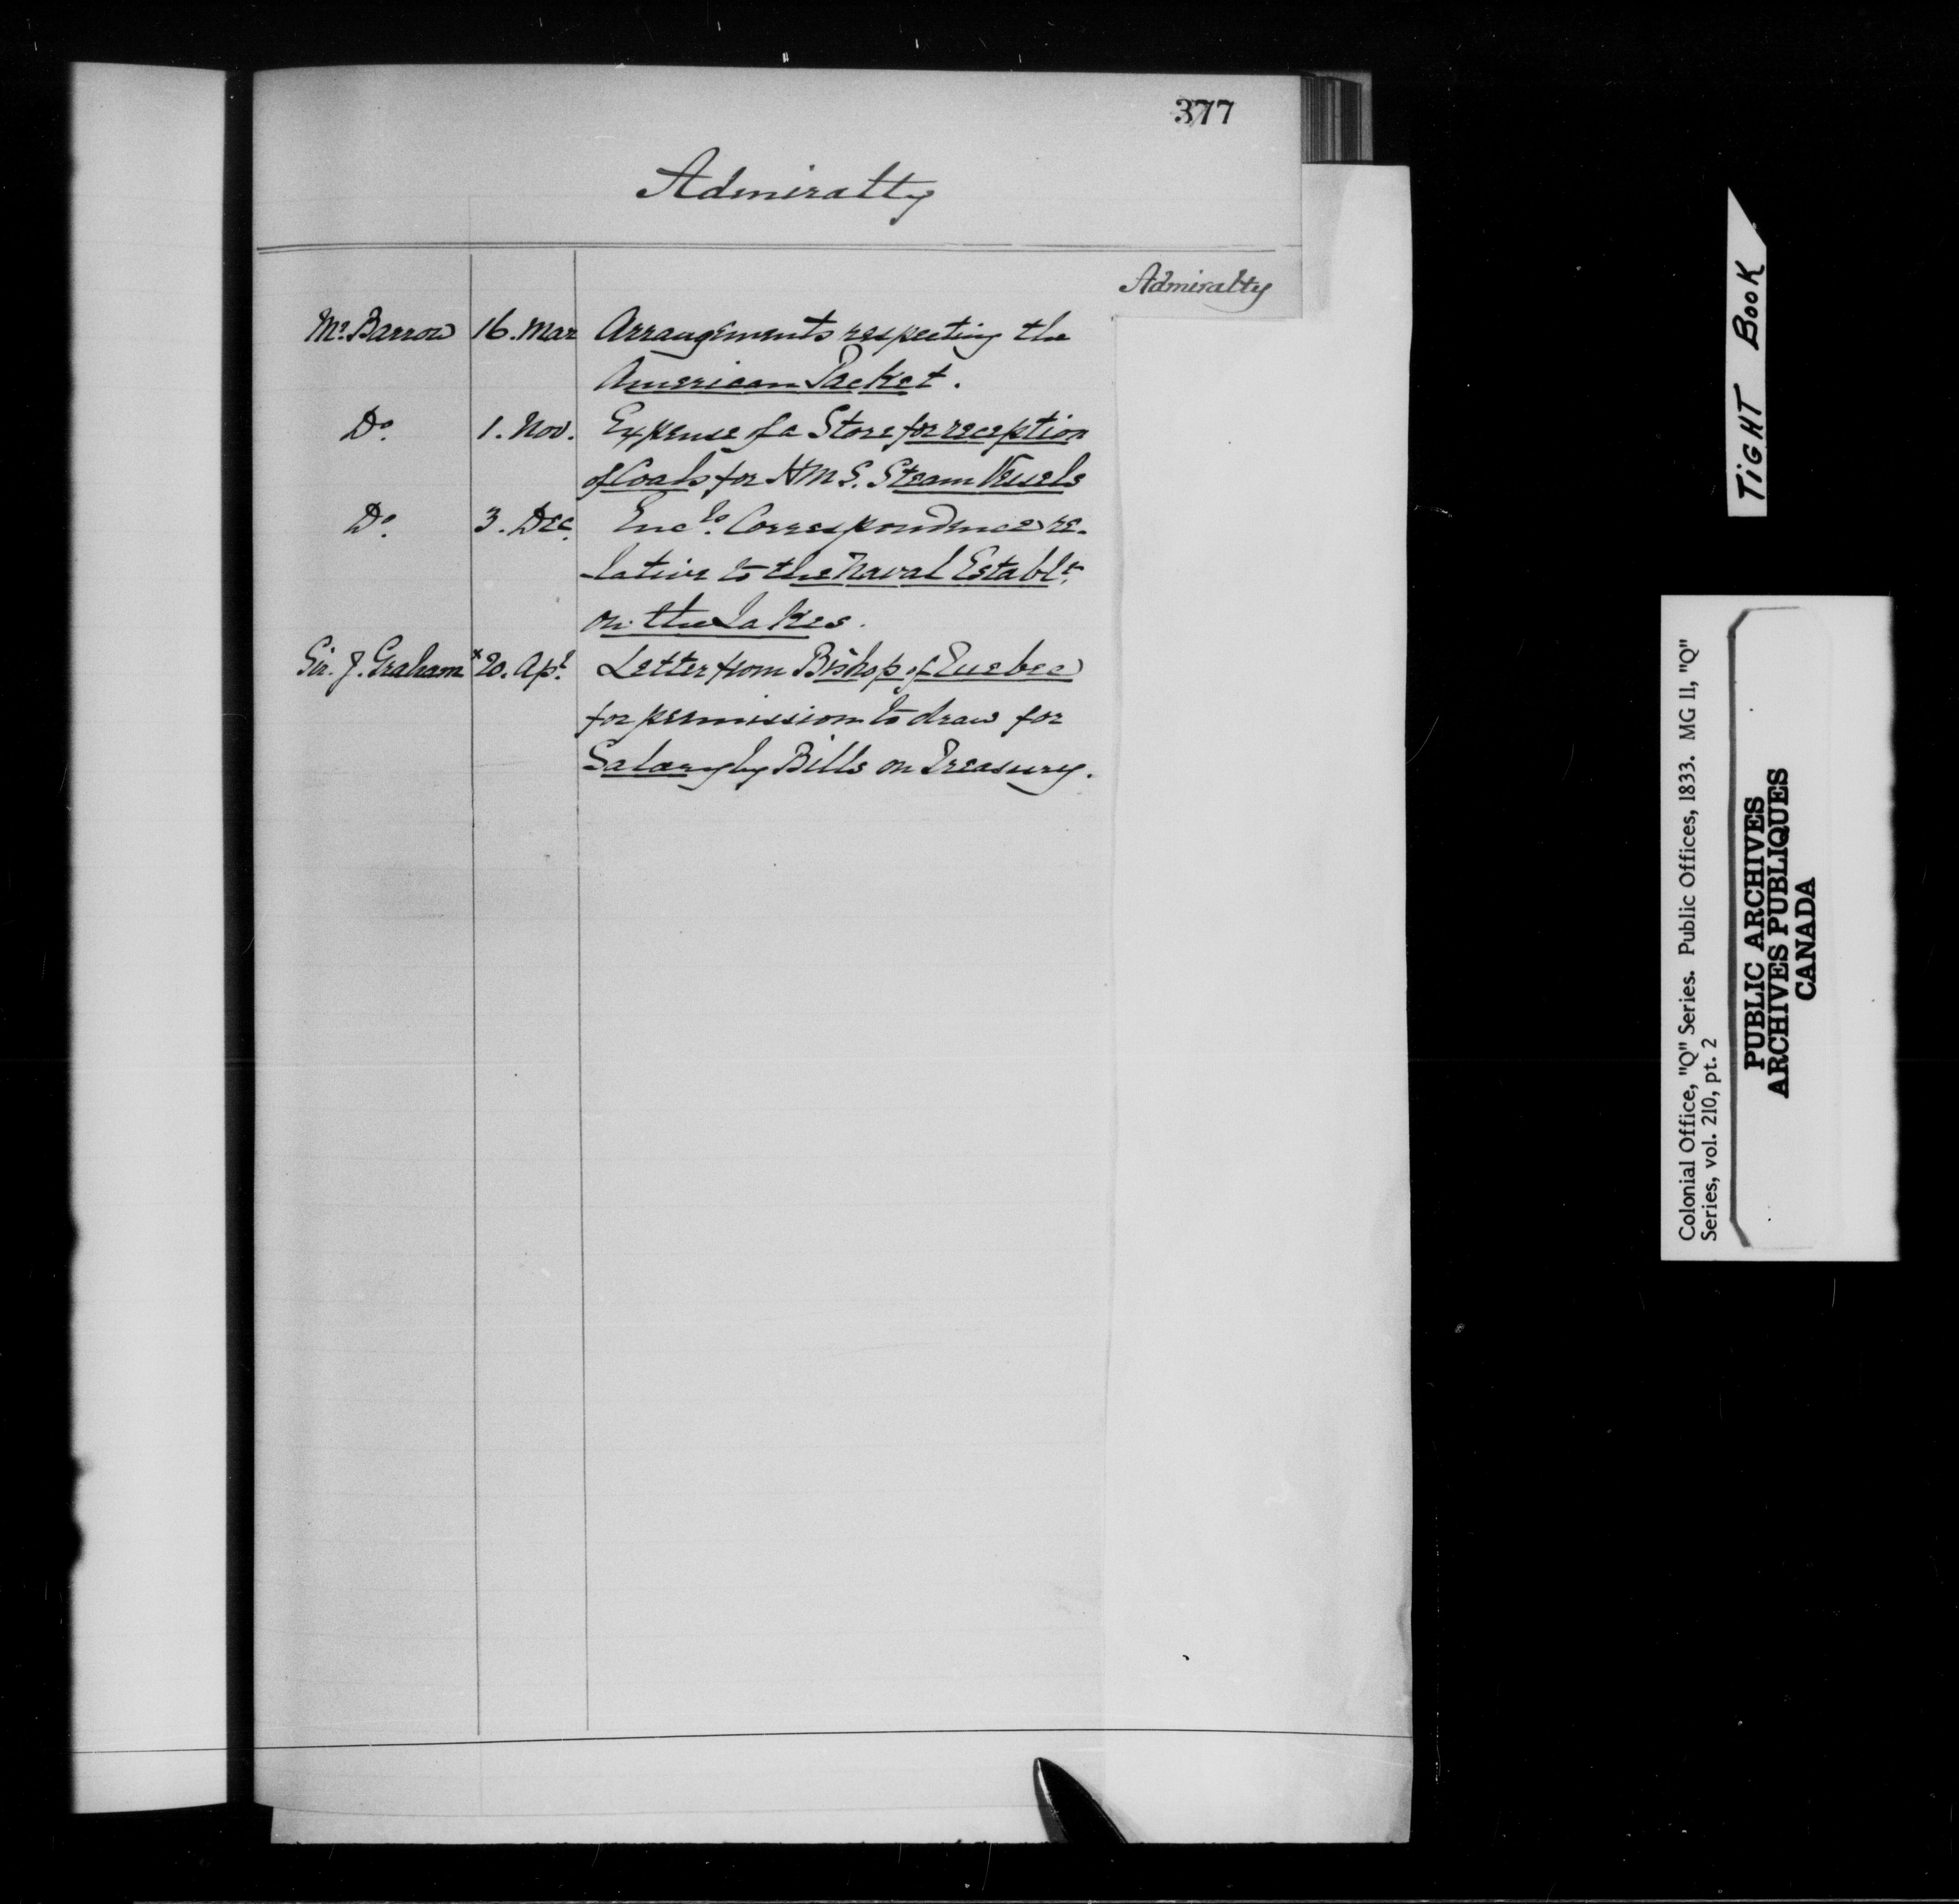 377
Admiralty
Admiralty
Mr. Barrow 16. Mar Arrangements respecting the
American Packet.
Do. 1. Nov. Expense of a Store for reception
of Coals for HMS. Steam Vessels
Do. 3. Dec. Encls. Correspondence re-
-lative to the Naval Establt.
on the Lakes.
Sir. J. Graham x 20. Apl. Letter from Bishop of Quebec
for permission to draw for
Salary by Bills on Treasury.
TIGHT BOOK
Colonial Office, "Q" Series. Public Offices, 1833. MG 11, "Q"
Series, vol. 210, pt. 2
PUBLIC ARCHIVES
ARCHIVES PUBLIQUES
CANADA